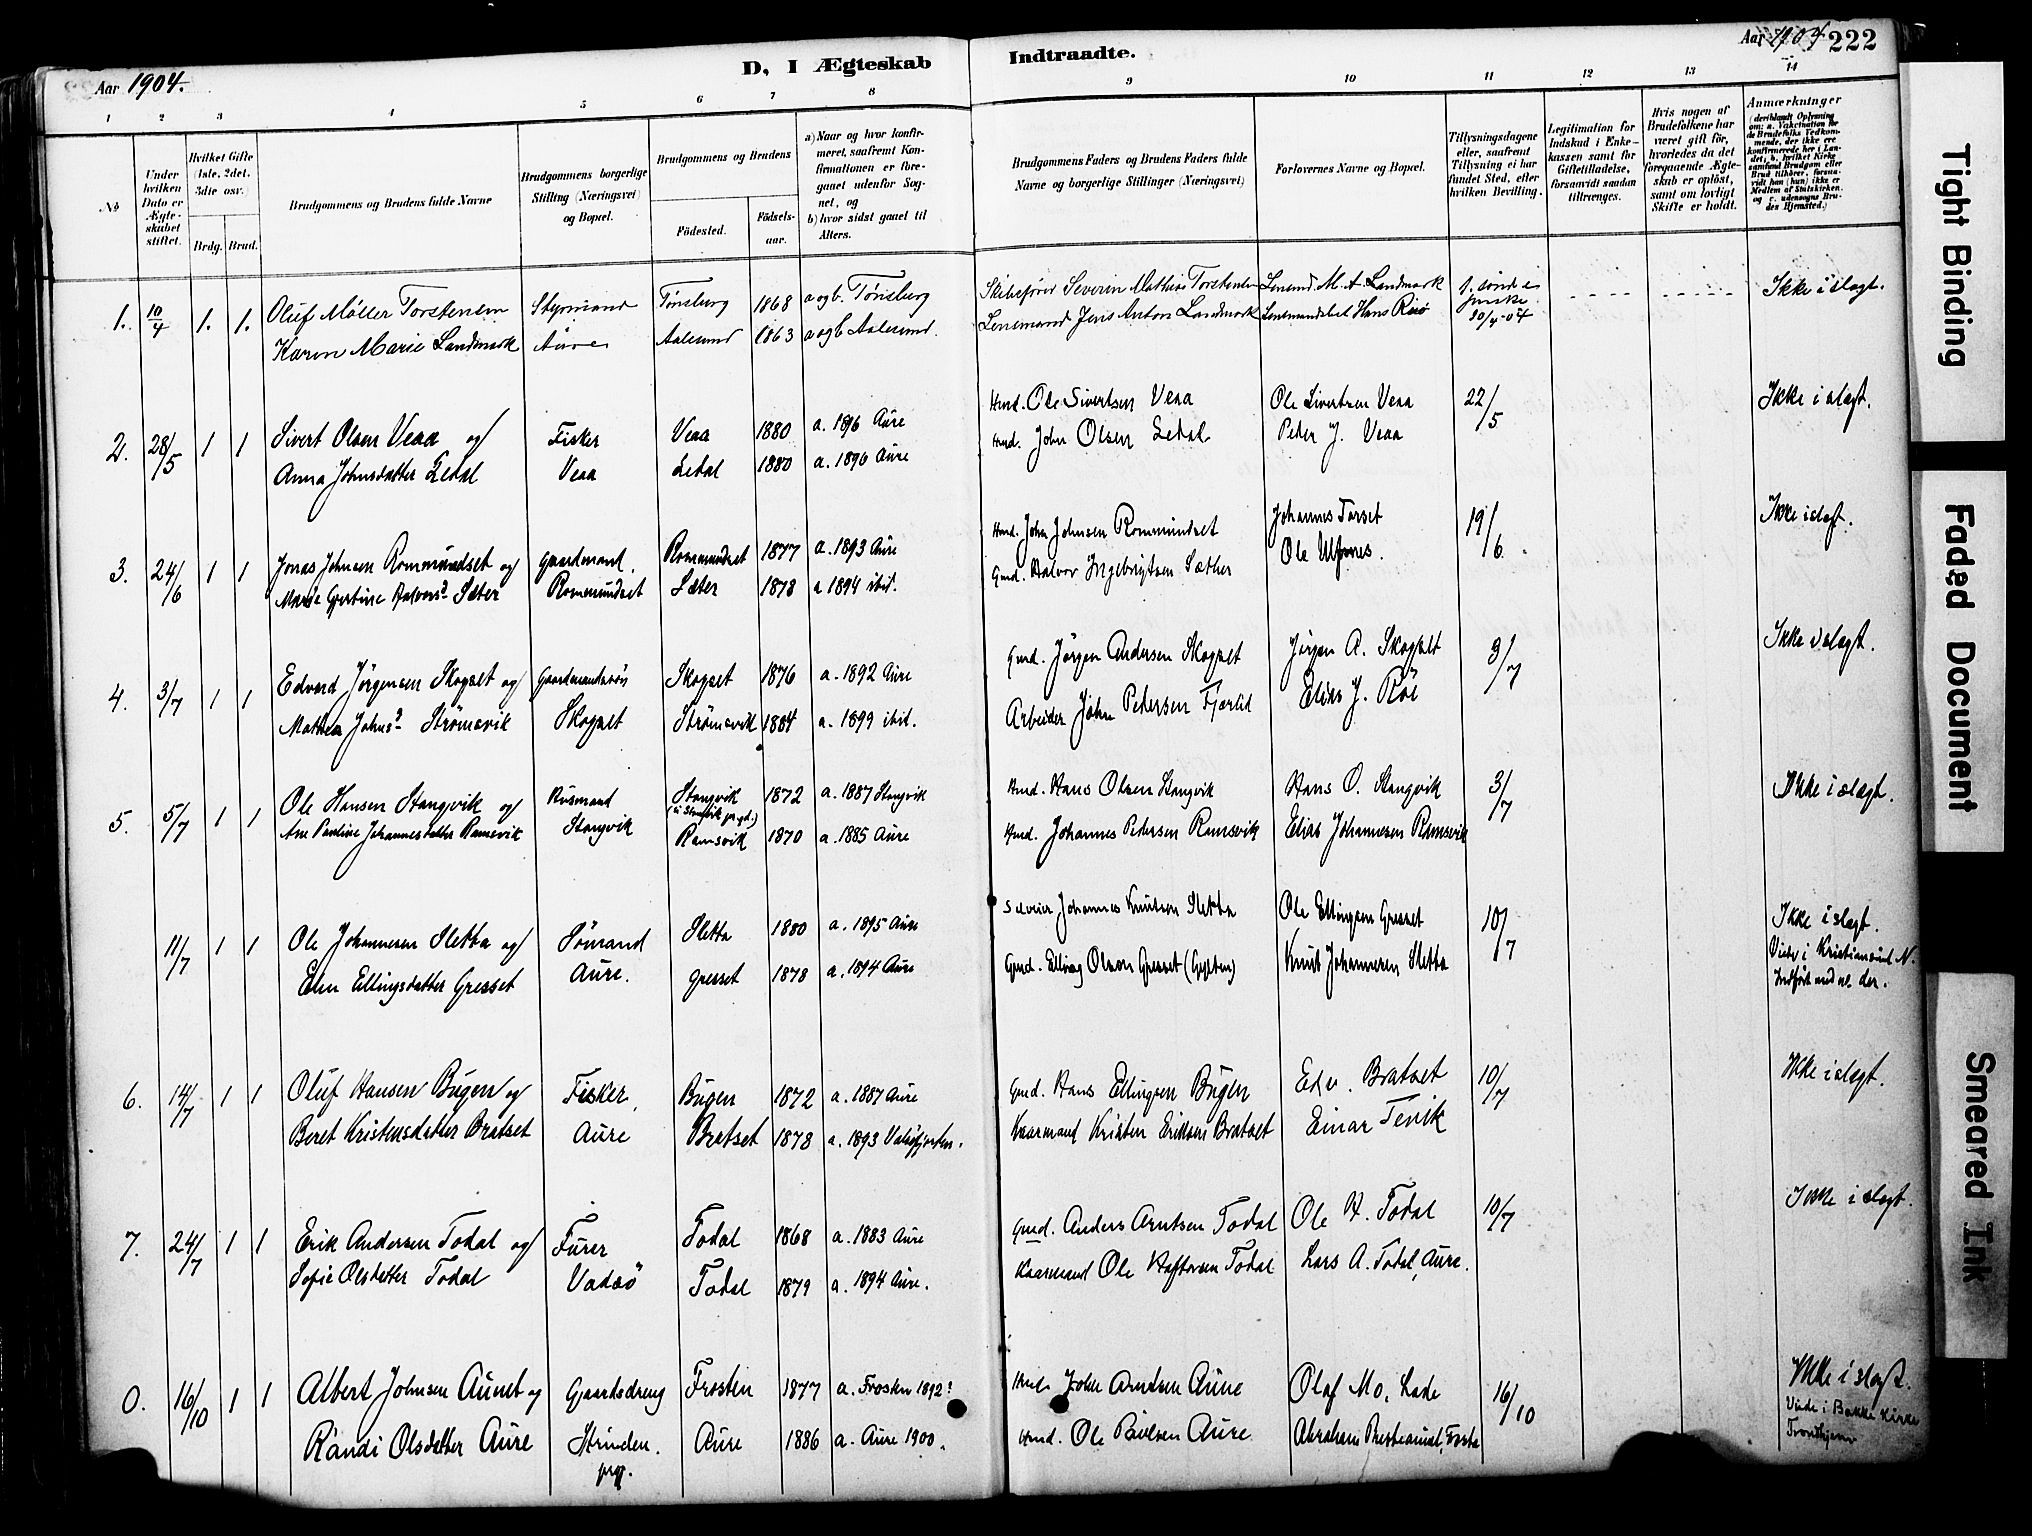 Aar 1904.
D, I Ægteskab
Indtraadte.
Aar 1904
222
1
2
3
4
5
6
7
8
9
10
11
12
13
14
No
Under hvilken Dato er Ægteskabet stiftet.
Hvilket Gifte (1ste, 2det, 3die osv.)
Brdg.
Brud.
Brudgommens og Brudens fulde Navne
Brudgommens borgerlige Stilling (Næringsvei) og Bopæl.
Brudgommens og Brudens
Födested.
Födselsaar.
a) Naar og hvor konfirmeret, saafremt Konfirmationen er foregaaet udenfor Sognet, og
b) hvor sidst gaaet til Alters.
Brudgommens Faders og Brudens Faders fulde Navne og borgerlige Stillinger (Næringsvei)
Forlovernes Navne og Bopæl.
Tillysningsdagene eller, saafremt Tillysning ei har fundet Sted, efter hvilken Bevilling.
Legitimation for Indskud i Enkekassen samt for Giftetilladelse, forsaavidt saadan tiltrænges.
Hvis nogen af Brudefolkene har været gift för, hvorledes da det foregaaende Ægteskab er oplöst, samt om lovligt Skifte er holdt.
Anmærkninger (deriblandt Oplysning om: a. Vakcination for de Brudefolks Vedkommende, der ikke ere konfirmerede her i Landet; b. hvilket Kirkesamfund Brudgom eller Brud tilhörer, forsaavidt han (hun) ikke er Medlem af Statskirken, og c. udensogns Brudes Hjemsted.)
1. 10/4 1. 1. Oluf Möller Torstensen Styrmand Tönsberg 1868 a og b. Tönsberg Skibsförer Severin Mathias Torstensen Lensmd. M. A. Landmark Ikke i slægt.
Karen Marie Landmark Aure Aalesund 1863 a og b Aalesund. Lensmand Jens Anton Landmark Lensmandsbet Hans Risö 20/4-04
2. 28/5 1 1 Sivert Olsen Veaa og Fisker Veaa 1880 a. 1896 Aure Hmd. Ole Sivertsen Veaa Ole Sivertsen Veaa 22/5 Ikke i slægt.
Anna Johnsdatter Ledal Veaa Ledal 1880 a. 1896 Aure Hmd. John Olsen Ledal Peder J. Veaa
3. 24/6 1 1 Jonas Johnsen Rommundset og Gaardmand. Rommundset 1877 a. 1893 Aure Hmd. John Johnsen Rommundset Johannes Torset 19/6. Ikke i slægt.
Marie Gjertine Halvors? Sæter Rommundset Sæter 1878 a 1894 ibid. Gmd. Halvor Ingebrigtsen Sæther Ole Ulfsnes.
4. 3/7 1 1 Edvard Jörgensen Skogset og Gaardmandssön Skogset 1876 a. 1892 Aure Gmd. Jörgen Andersen Skogset Jörgen A. Skogset 3/7 Ikke i slægt.
Mathea Johns? Strömsvik Skogset Strömsvik 1884 a. 1899 ibid. Arbeider John Pedersen Fjærlid Elias J. Röe
5. 5/7 1 1 Ole Hansen Stangvik og Husmand Stangvik 1872 a. 1887 Stangvik Hmd. Hans Olsen Stangvik Hans O. Stangvik 3/7 Ikke i slægt.
Ane Pauline Johannesdatter Ramsvik Stangvik (i Stangvik prgd.) Ramsvik 1870 a. 1885 Aure Hmd. Johannes Petersen Ramsvik Elias Johannesen Ramsvik
11/7 1 1 Ole Johannesen Sletta og Sömand Sletta 1880 a. 1895 Aure Selveier Johannes Knutsen Sletta Ole Ellingsen Gresset 10/7 Ikke i slægt.
Elen Ellingsdatter Gresset Aure. Gresset 1878 a. 1894 Aure Gmd. Elling Olsen Gresset Knut Johannesen Sletta Viede i Kristiansund N.
Indfört med no. der.
6. 14/7 1 1 Oluf Hansen Bugen og Fisker, Bugen 1872 a. 1887 Aure Gmd. Hans Ellingsen Bugen Edv. Bratset 10/7 Ikke i slægt.
Beret Kristensdatter Bratset Aure Bratset 1878 a. 1893 Valsöfjorden. Kaarmand Kristen Eriksen Bratset Einar Tevik
7. 24/7 1 1 Erik Andersen Todal og Furer Todal 1868 a. 1883 Aure Gmd. Anders Arntsen Todal Ole H. Todal 10/7 Ikke i slægt.
Sofie Olsdatter Todal Vadsö Todal 1879 a. 1894 Aure. Kaarmand Ole Haftorsen Todal Lars A. Todal, Aure.
0. 16/10 1 1 Albert Johnsen Aunet og Gaardsdreng Frosten 1877 a. Frosten 1892? John Arntsen Aune Olaf Mo, Lade 16/10 Ikke i slægt.
Randi Olsdatter Aure Strinden. prgj. Aure 1886 a. Aure 1900. Hmd. Ole Paulsen Aure Abraham Viede i Bakke Kirke
Trondhjem
Tight Binding
Faded Document
Smeared Ink